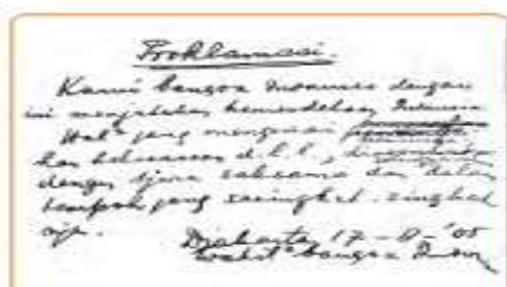 Proklamasi.
Kami bangsa Indonesia dengan
ini menjatakan kemerdekaan Indonesia
Hal² jang mengenai
kekoeasaan d.l.l.,
dengan tjara saksama dan dalam
tempoh jang sesingkat-singkat
nja.
Djakarta 17-8-'05
Wakil² bangsa Indon